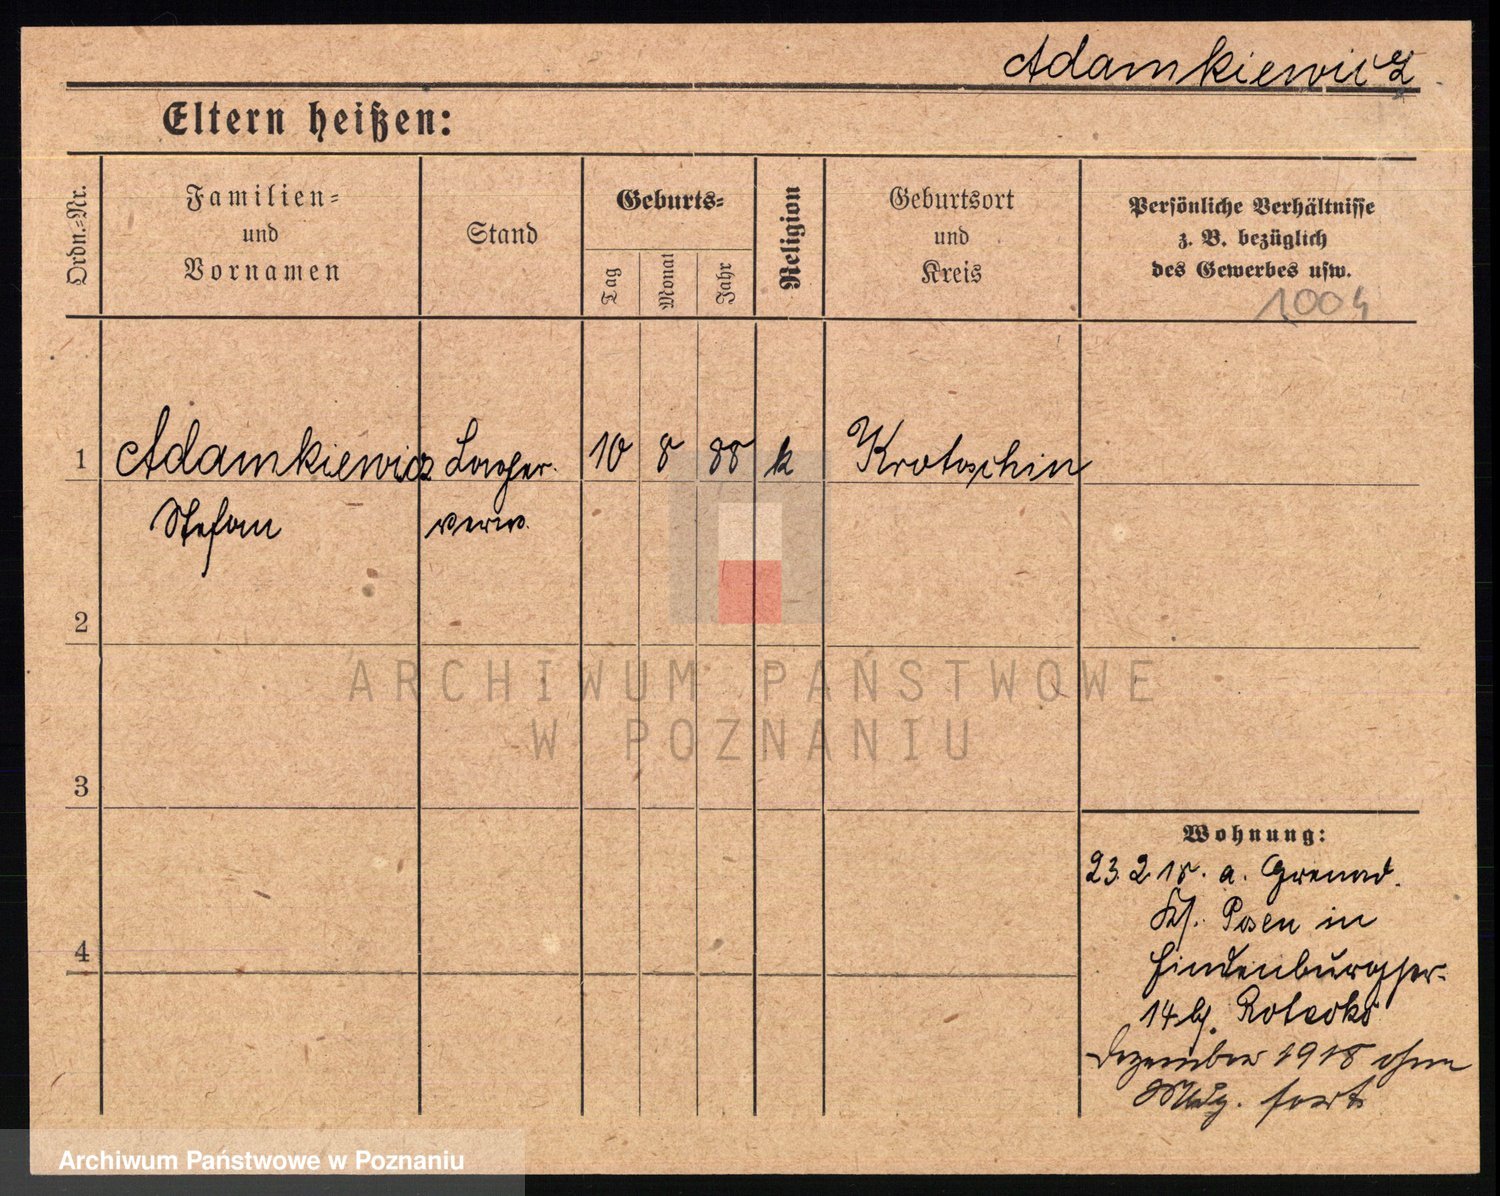 Adamkiewicz
Eltern heißen:
Ordn.=Nr.
Familien=
und
Vornamen
Stand
Geburts=
Tag
Monat
Jahr
Religion
Geburtsort
und
Kreis
Persönliche Verhältnisse
z. B. bezüglich
des Gewerbes usw.
1004
1 Adamkiewicz Lager 10 8 88 k Krotoschin
Stefan verw.
2
3
4
Wohnung:
23 2 18. a. Grenad.
Posen in
Hindenburgstr.
14 b.
Dezember 1918 ohne
Mldg. fort
ARCHIWUM PAŃSTWOWE
W POZNANIU
Archiwum Państwowe w Poznaniu